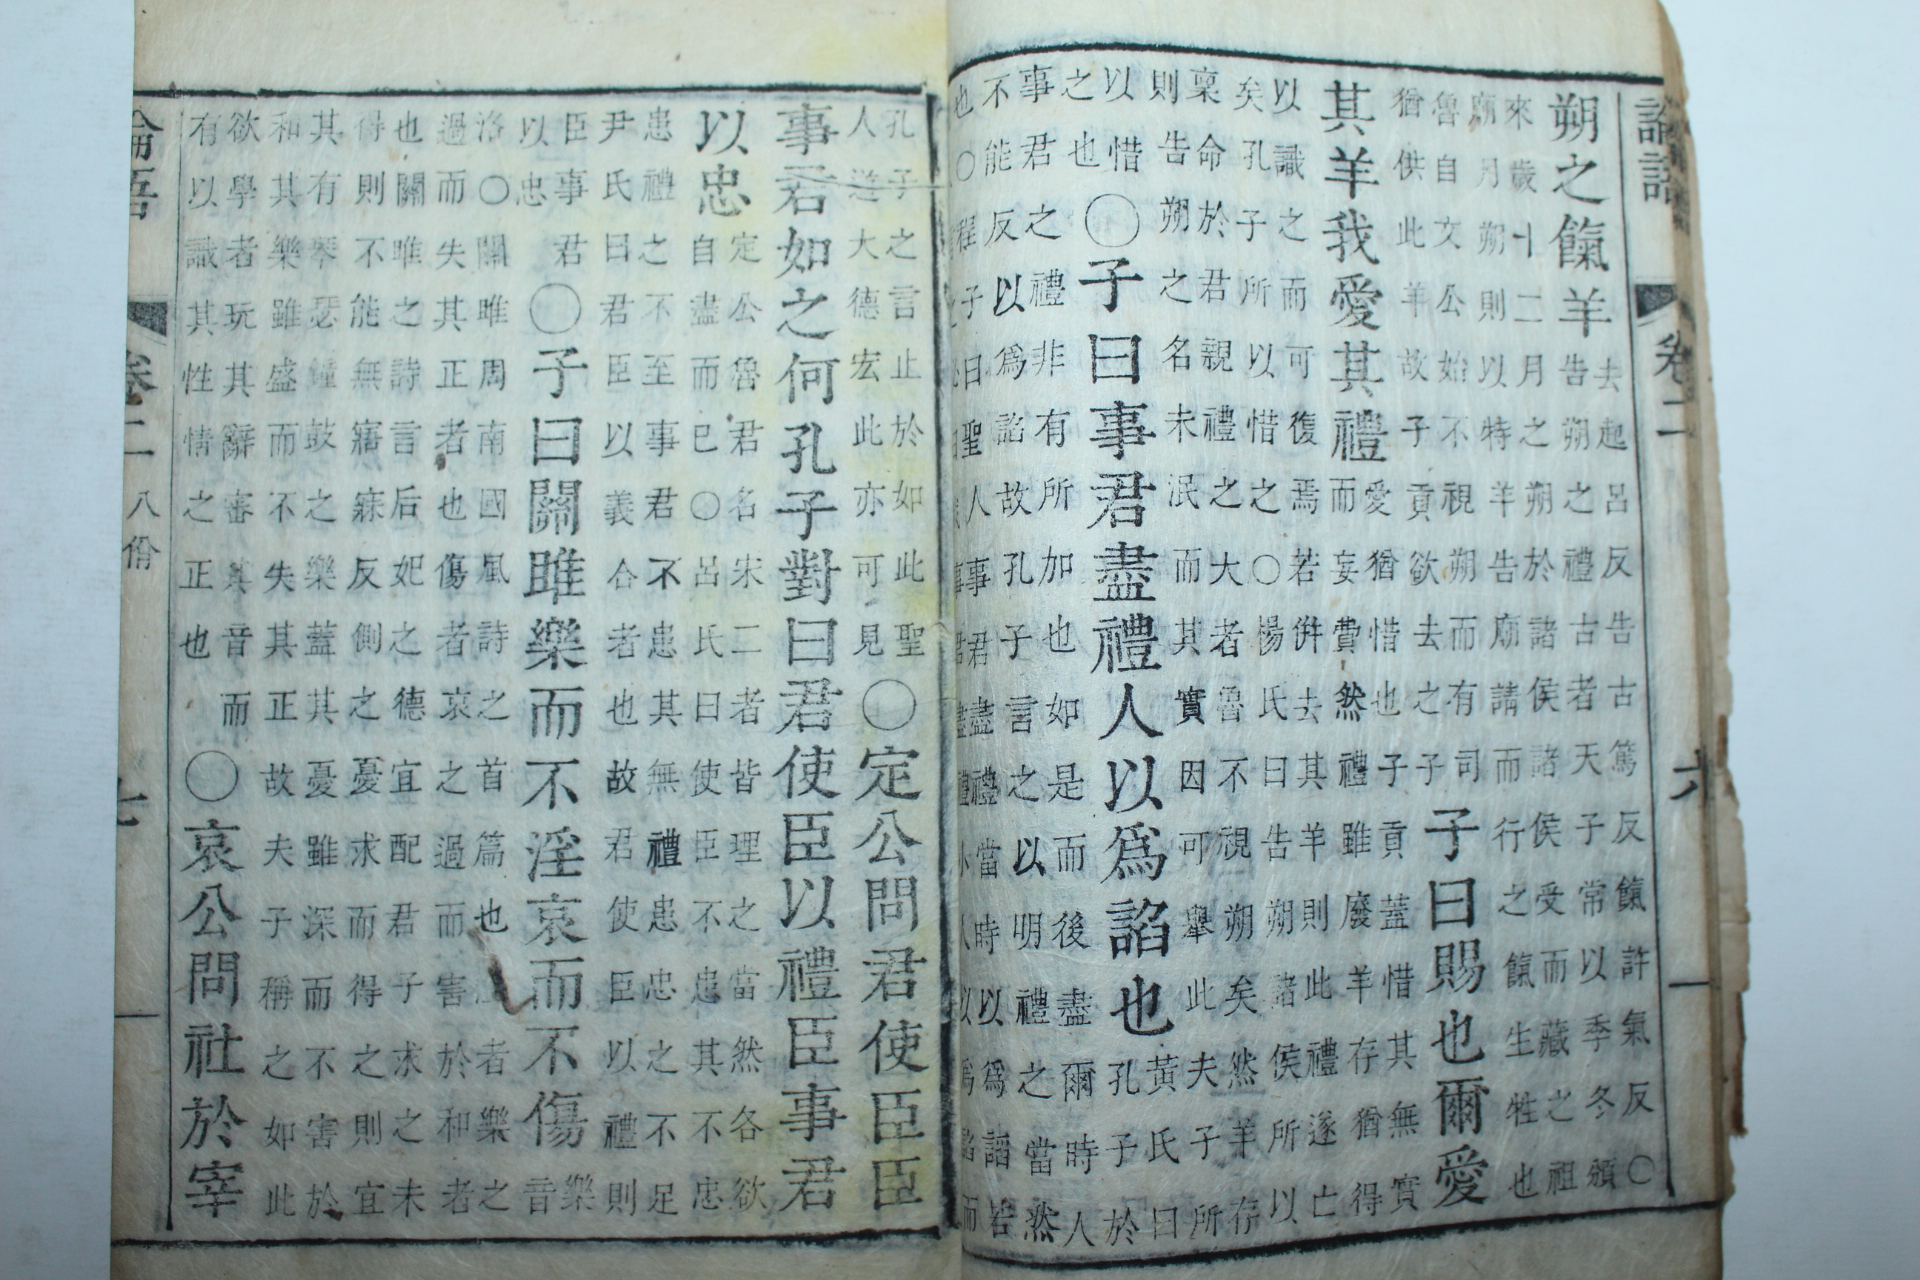 論語 卷二 六
朔之餼羊
去起呂反告古篤反餼許氣反○
告朔之禮古者天子常以季冬頒
來歲十二月之朔於諸侯諸侯受而藏之祖
廟月朔則以特羊告廟請而行之餼生牲也
魯自文公始不視朔而有司
猶供此羊故子貢欲去之子
子曰賜也爾愛
其羊我愛其禮
愛猶惜也子貢蓋惜其無實
而妄費然禮雖廢羊存猶得
以識之而可復焉若併去其羊則此禮遂亡
矣孔子所以惜之○楊氏曰告朔諸侯所以
稟命於君親禮之大者魯不視朔矣然羊存
則告朔之名未泯而其實因可舉此夫子所
以惜
之也
○子曰事君盡禮人以爲諂也
黃氏曰
孔子於
事君之禮非有所加也如是而後盡爾時人
不能反以爲諂故孔子言之以明禮之當然
也○程子曰聖人事君盡禮當時以爲諂若
事君盡禮小人以爲諂而
孔子之言止於如此聖
人道大德宏此亦可見
○定公問君使臣臣
事君如之何孔子對曰君使臣以禮臣事君
以忠
定公魯君名宋二者皆理之當然各欲
自盡而已○呂氏曰使臣不患其不忠
患禮之不至事君不患其無禮患忠之不足
尹氏曰君臣以義合者也故君使臣以禮則
臣事君
以忠
○子曰關雎樂而不淫哀而不傷
樂
音
洛○關雎周南國風詩之首篇也淫者樂之
過而失其正者也傷者哀之過而害於和者
也關雎之詩言后妃之德宜配君子求之未
得則不能無寤寐反側之憂求而得之則宜
其有琴瑟鐘鼓之樂蓋其憂雖深而不害於
和其樂雖盛而不失其正故夫子稱之如此
欲學者玩其辭審其音而
有以識其性情之正也
○哀公問社於宰
論語 卷二 八佾 七